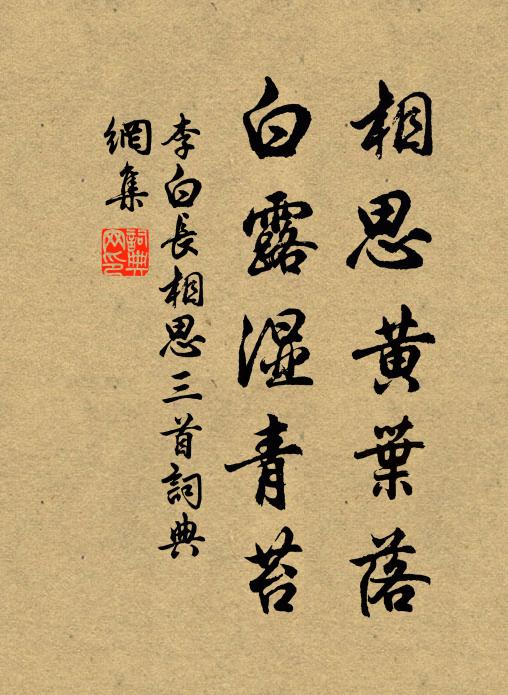 相思黄葉落
白露湿青苔
李白長相思三首詞典
網集
詞典
网印